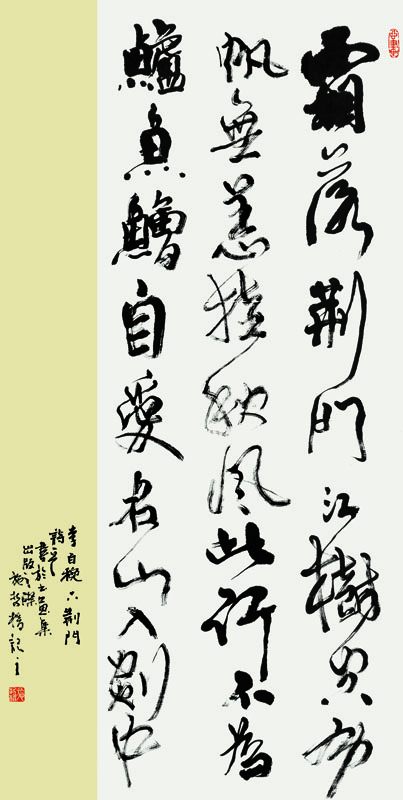 霜落荆門江樹空布
帆無恙掛秋風此行不為
鱸魚鱠自愛名山入剡中
李白秋下荆門
詩
書於書畫集
出版之際
記之